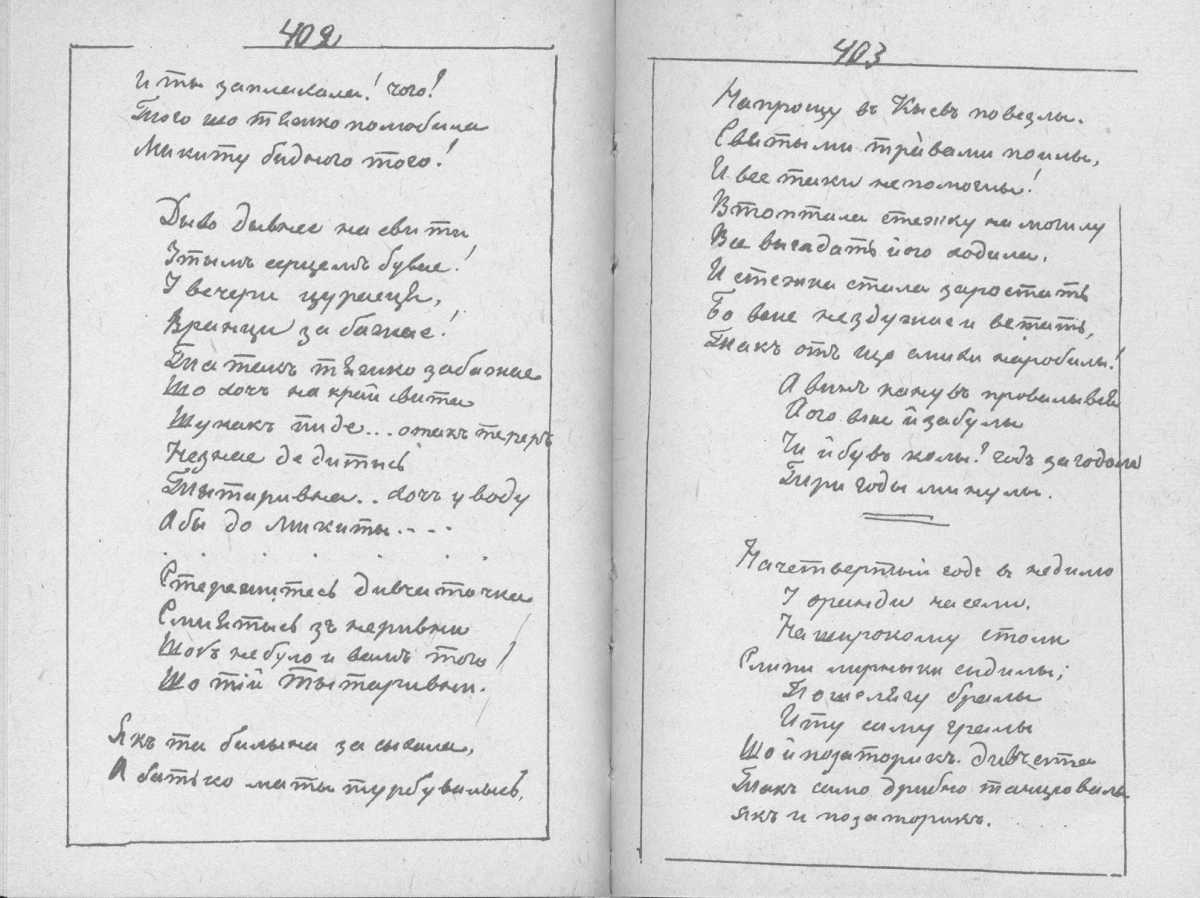 402
И ты заплакала! чого!
Того що тяжко полюбила
Микиту бидного того!
Дыво дывнее на свити
Зтымъ серцемъ бувае!
У вечери цураеця,
Вранци забажае!
Та такъ тяжко забажае
Що хочъ на край свита
Шукакъ пиде... отакъ теперъ
Незнае де дитысь
Тытаривна.. хочъ у воду
Абы до Микиты....
Стережитесь дивчаточка
Смиятысь зъ неривни
Щобъ небуло и вамъ того!
Що тій Тытаривни.
Якъ та былына засыхала,
А батько маты турбувалысь,
403
На прощу въ Кыевъ повезлы.
Святыми травами поилы,
И все таки непомоглы!
Втоптала стежку на могилу
Все выгадать його ходила.
И стежка стала заростать
Бо вже нездужае и встать,
Такъ отъ що смихи наробылы!
А винъ канувъ провалывся
Його вже й забулы
Чи й бувъ колы? годъ за годомъ
Три годы минулы.
На четвертый годъ в недилю
У оранди на сели.
На широкому столи
Слипи лирныки сидилы;
По шелягу бралы
И ту саму гралы
Що й позаторикъ. Дивчата
Такъ само дрибно танцювалы
Якъ и позаторикъ.